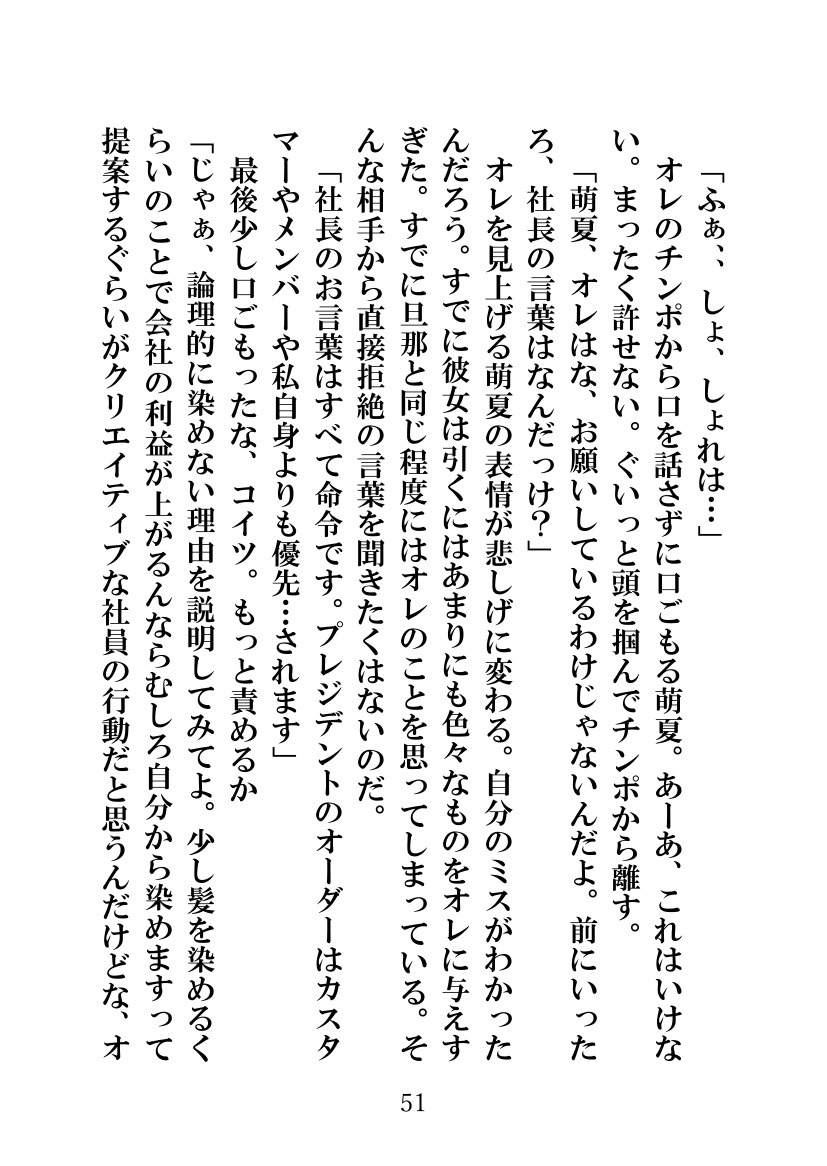 「ふぁ、、しょ、しょれは…」
オレのチンポから口を話さずに口ごもる萌夏。あーあ、これはいけな
い。まったく許せない。ぐいっと頭を掴んでチンポから離す。
「萌夏、オレはな、お願いしているわけじゃないんだよ。前にいった
ろ、社長の言葉はなんだっけ？」
オレを見上げる萌夏の表情が悲しげに変わる。自分のミスがわかった
んだろう。すでに彼女は引くにはあまりにも色々なものをオレに与えす
ぎた。すでに旦那と同じ程度にはオレのことを思ってしまっている。そ
んな相手から直接拒絶の言葉を聞きたくはないのだ。
「社長のお言葉はすべて命令です。プレジデントのオーダーはカスタ
マーやメンバーや私自身よりも優先…されます」
最後少し口ごもったな、コイツ。もっと責めるか
「じゃぁ、論理的に染めない理由を説明してみてよ。少し髪を染めるく
らいのことで会社の利益が上がるんならむしろ自分から染めますって
提案するぐらいがクリエイティブな社員の行動だと思うんだけどな、オ
51